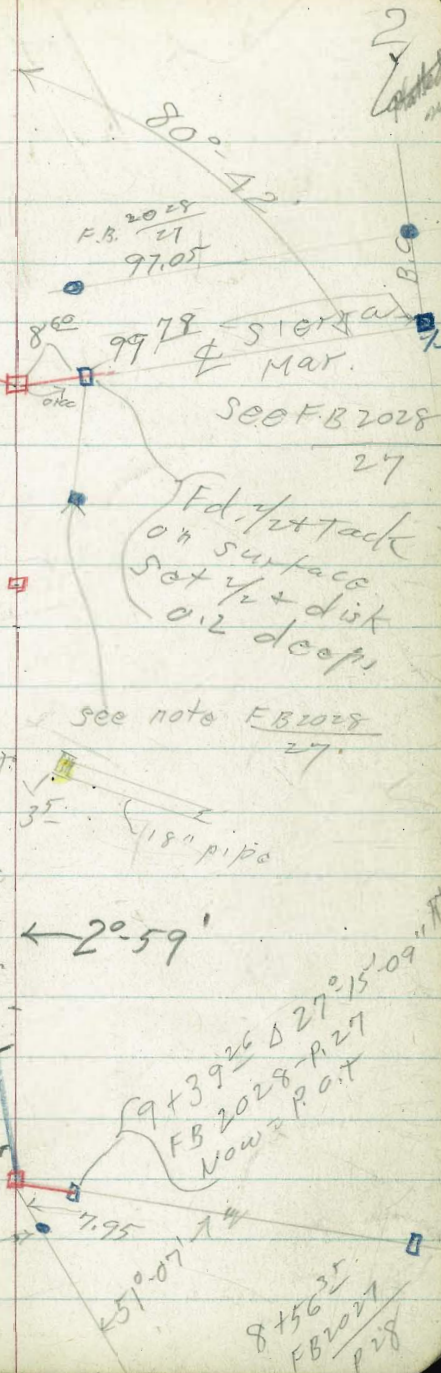 2
80°-42'
F.B. 2028
27
97.05
B.C
8 60
99 78
Sierra
℄
Mar.
See F.B 2028
27
Fd. 1/2 + Tack
on surface
Set 1/2 + disk
0.2 deep,
see note F.B 2028
27.
3 5
18" pipe
←2°-59'
9+39 26 Δ 27°-15'-09"
FB 2028-P.27
Now = P.O.T
7.95
51°-07'
8+56 35
FB 2027
P 28